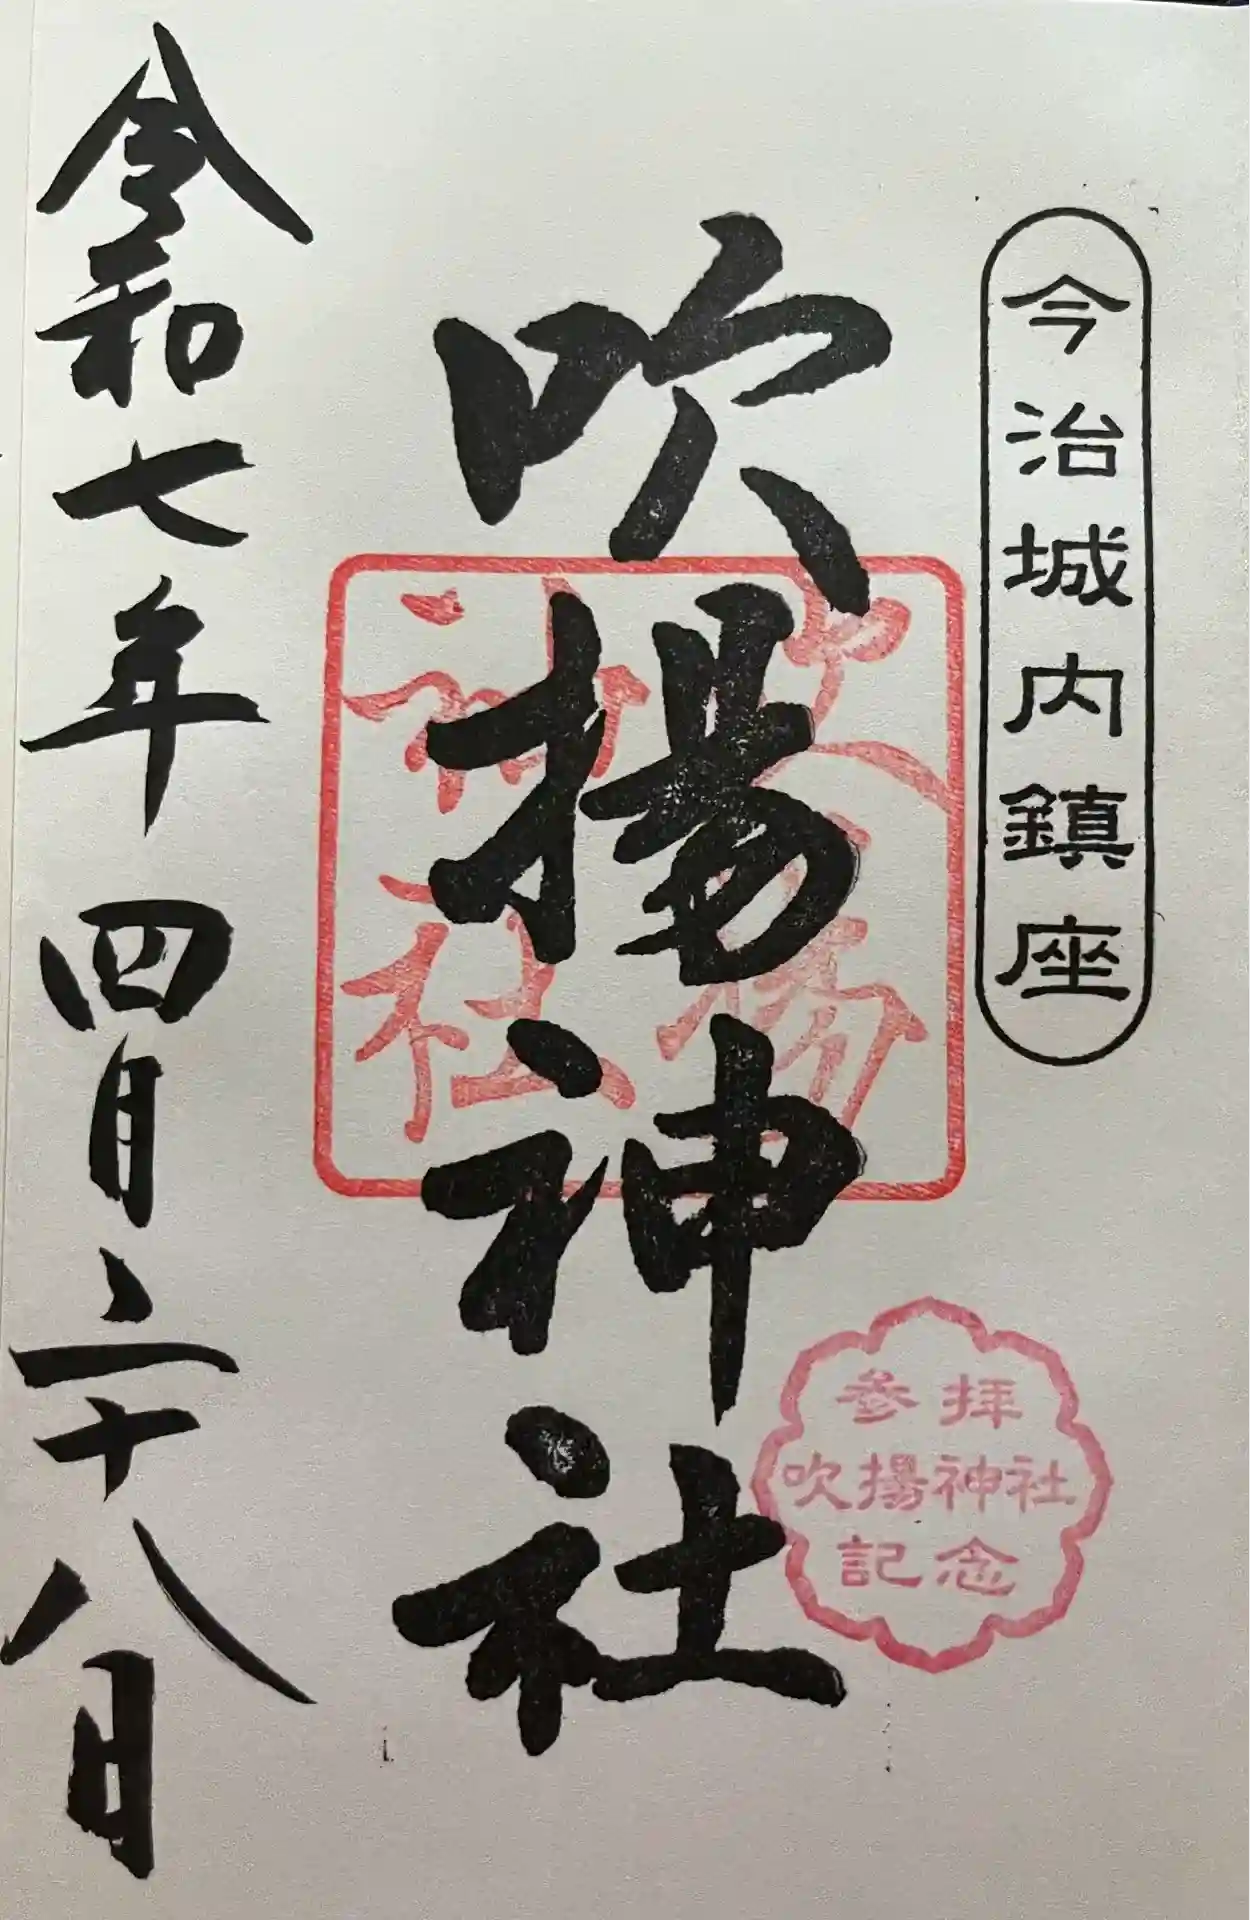 今治城内鎮座
吹揚神社
吹揚
神社
参拝
吹揚神社
記念
令和七年 四月二十八日